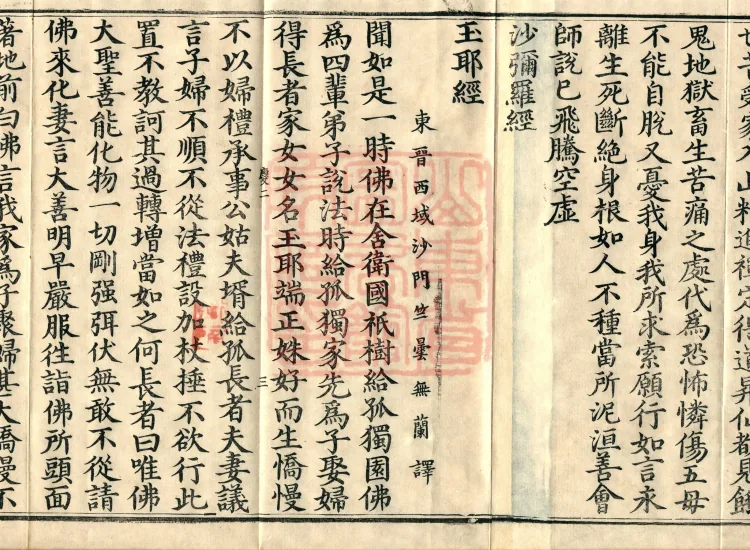 山精進禪定行道
鬼地獄畜生苦痛之處代爲恐怖憐傷五母
不能自脫又憂我身我所求索願行如言永
離生死斷絶身根如人不種當所泥洹善會
師說已飛騰空虛
沙彌羅經
玉耶經
東晉西域沙門竺曇無蘭譯
聞如是一時佛在舍衛國祇樹給孤獨園佛
爲四輩弟子說法時給孤獨家先爲子娶婦
得長者家女女名玉耶端正姝好而生憍慢
三
不以婦禮承事公姑夫壻給孤長者夫妻議
言子婦不順不從法禮設加杖捶不欲行此
置不教訶其過轉增當如之何長者曰唯佛
大聖善能化物一切剛强弭伏無敢不從請
佛來化妻言大善明早嚴服徃詣佛所頭面
著地前白佛言我家爲子娶婦甚大憍慢不